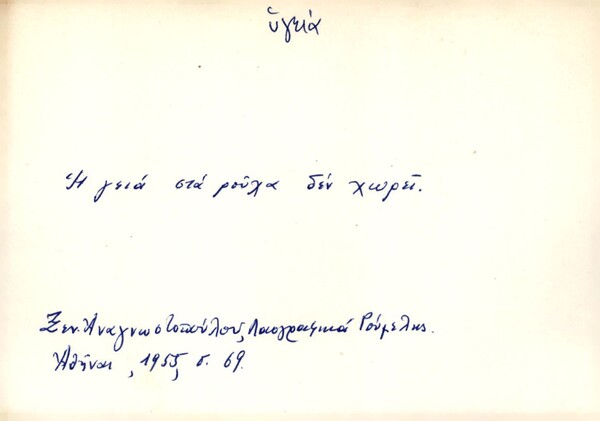 ὑγειά
Ἡ γειά στά ροῦχα δέν χωρεῖ.
Ξεν. Ἀναγνωστοπούλου, Λαογραφικά Ρούμελης.
Ἀθῆναι, 1955, σ. 69.